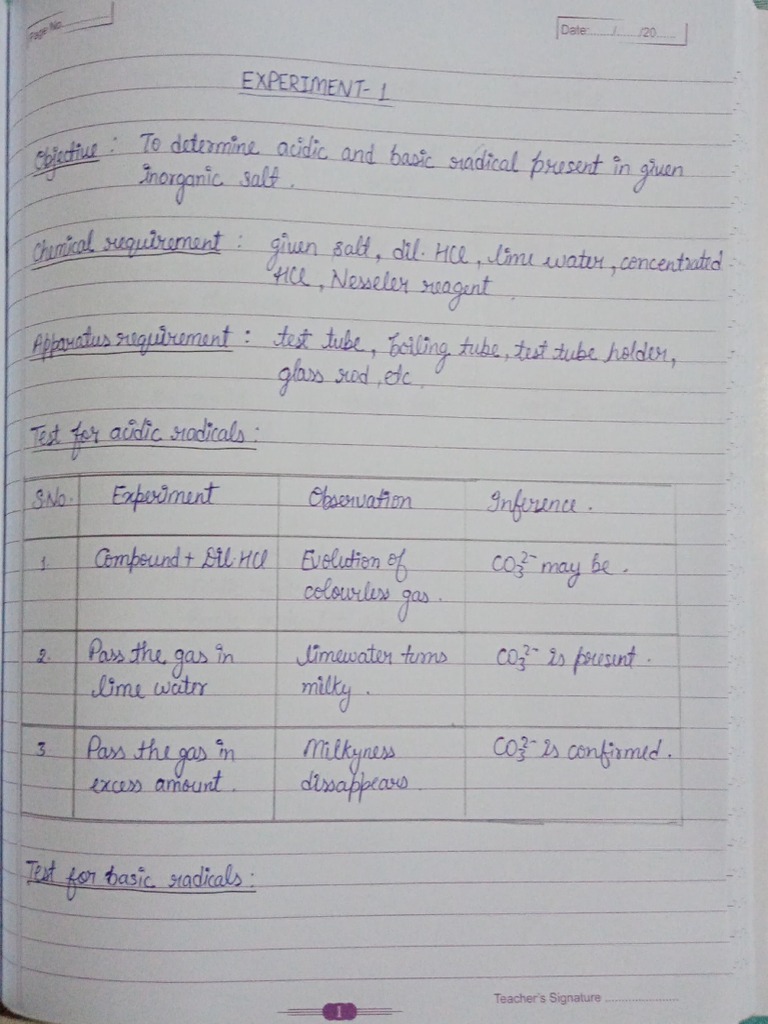 Page No.
Date: ....../....../20......
EXPERIMENT- 1
Objective : To determine acidic and basic radical present in given
inorganic salt.
Chemical requirement : given salt, dil. HCl, lime water, concentrated
HCl, Nesseler reagent
Apparatus requirement : test tube, boiling tube, test tube holder,
glass rod, etc.
Test for acidic radicals :
S.No. Experiment Observation Inference.
1. Compound + Dil. HCl Evolution of CO₃²⁻ may be.
colourless gas.
2. Pass the gas in limewater turns CO₃²⁻ is present.
lime water milky.
3. Pass the gas in Milkyness CO₃²⁻ is confirmed.
excess amount. dissappears.
Test for basic radicals :
Teacher's Signature ......................
1